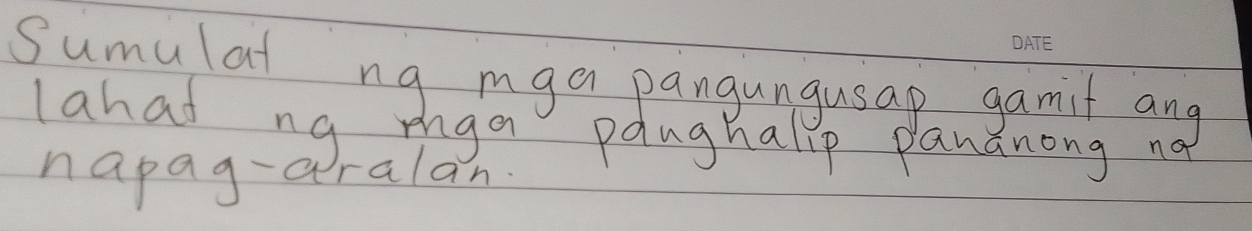 DATE
Sumulat ng mga pangungusap gamit ang
lahat ng mga panghalip pananong na
napag-aralan.